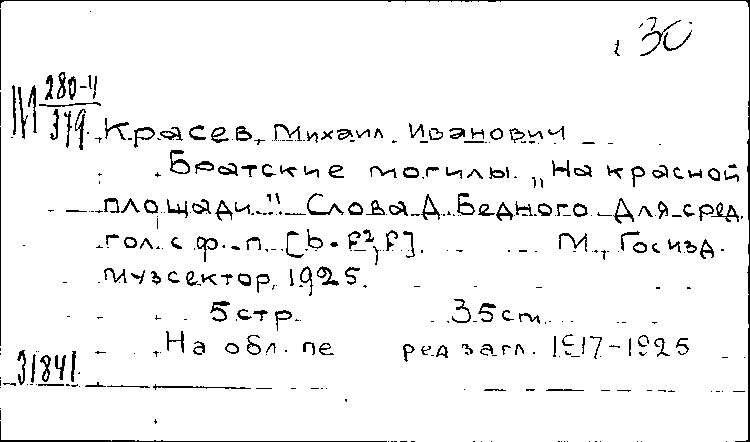 30
М 280-4
379
Красев, Михаил Иванович
Братские могилы. „На красной
площади." Слова Д. Бедного. Для сред.
гол. с ф.-п. [b-f², f]. М., Госизд.
музсектор, 1925.
5 стр. 35 cm
На обл. перед загл. 1917-1925
31841